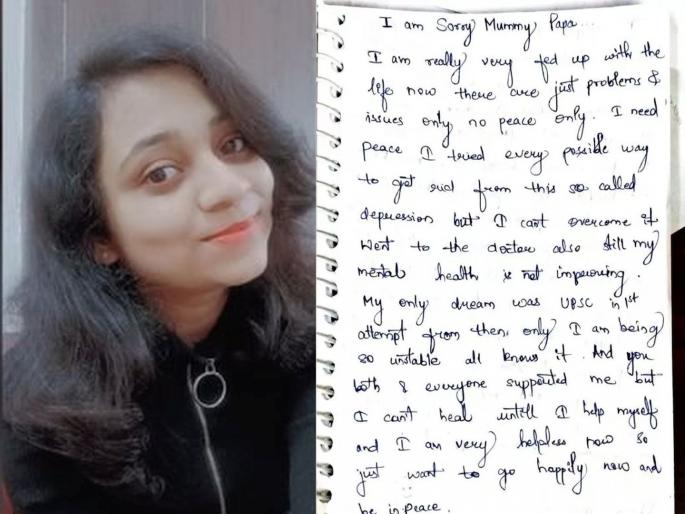 I am Sorry Mummy Papa...
I am really very fed up with the
life now there are just problems &
issues only no peace only. I need
peace I tried every possible way
to get rid from this so called
depression but I can't overcome it
Went to the doctor also still my
mental health is not improving.
My only dream was UPSC in 1st
attempt from then only I am being
so unstable all knows it. And you
both & everyone supported me but
I can't heal untill I help myself
and I am very helpless now so
just want to go happily now and
be in peace.